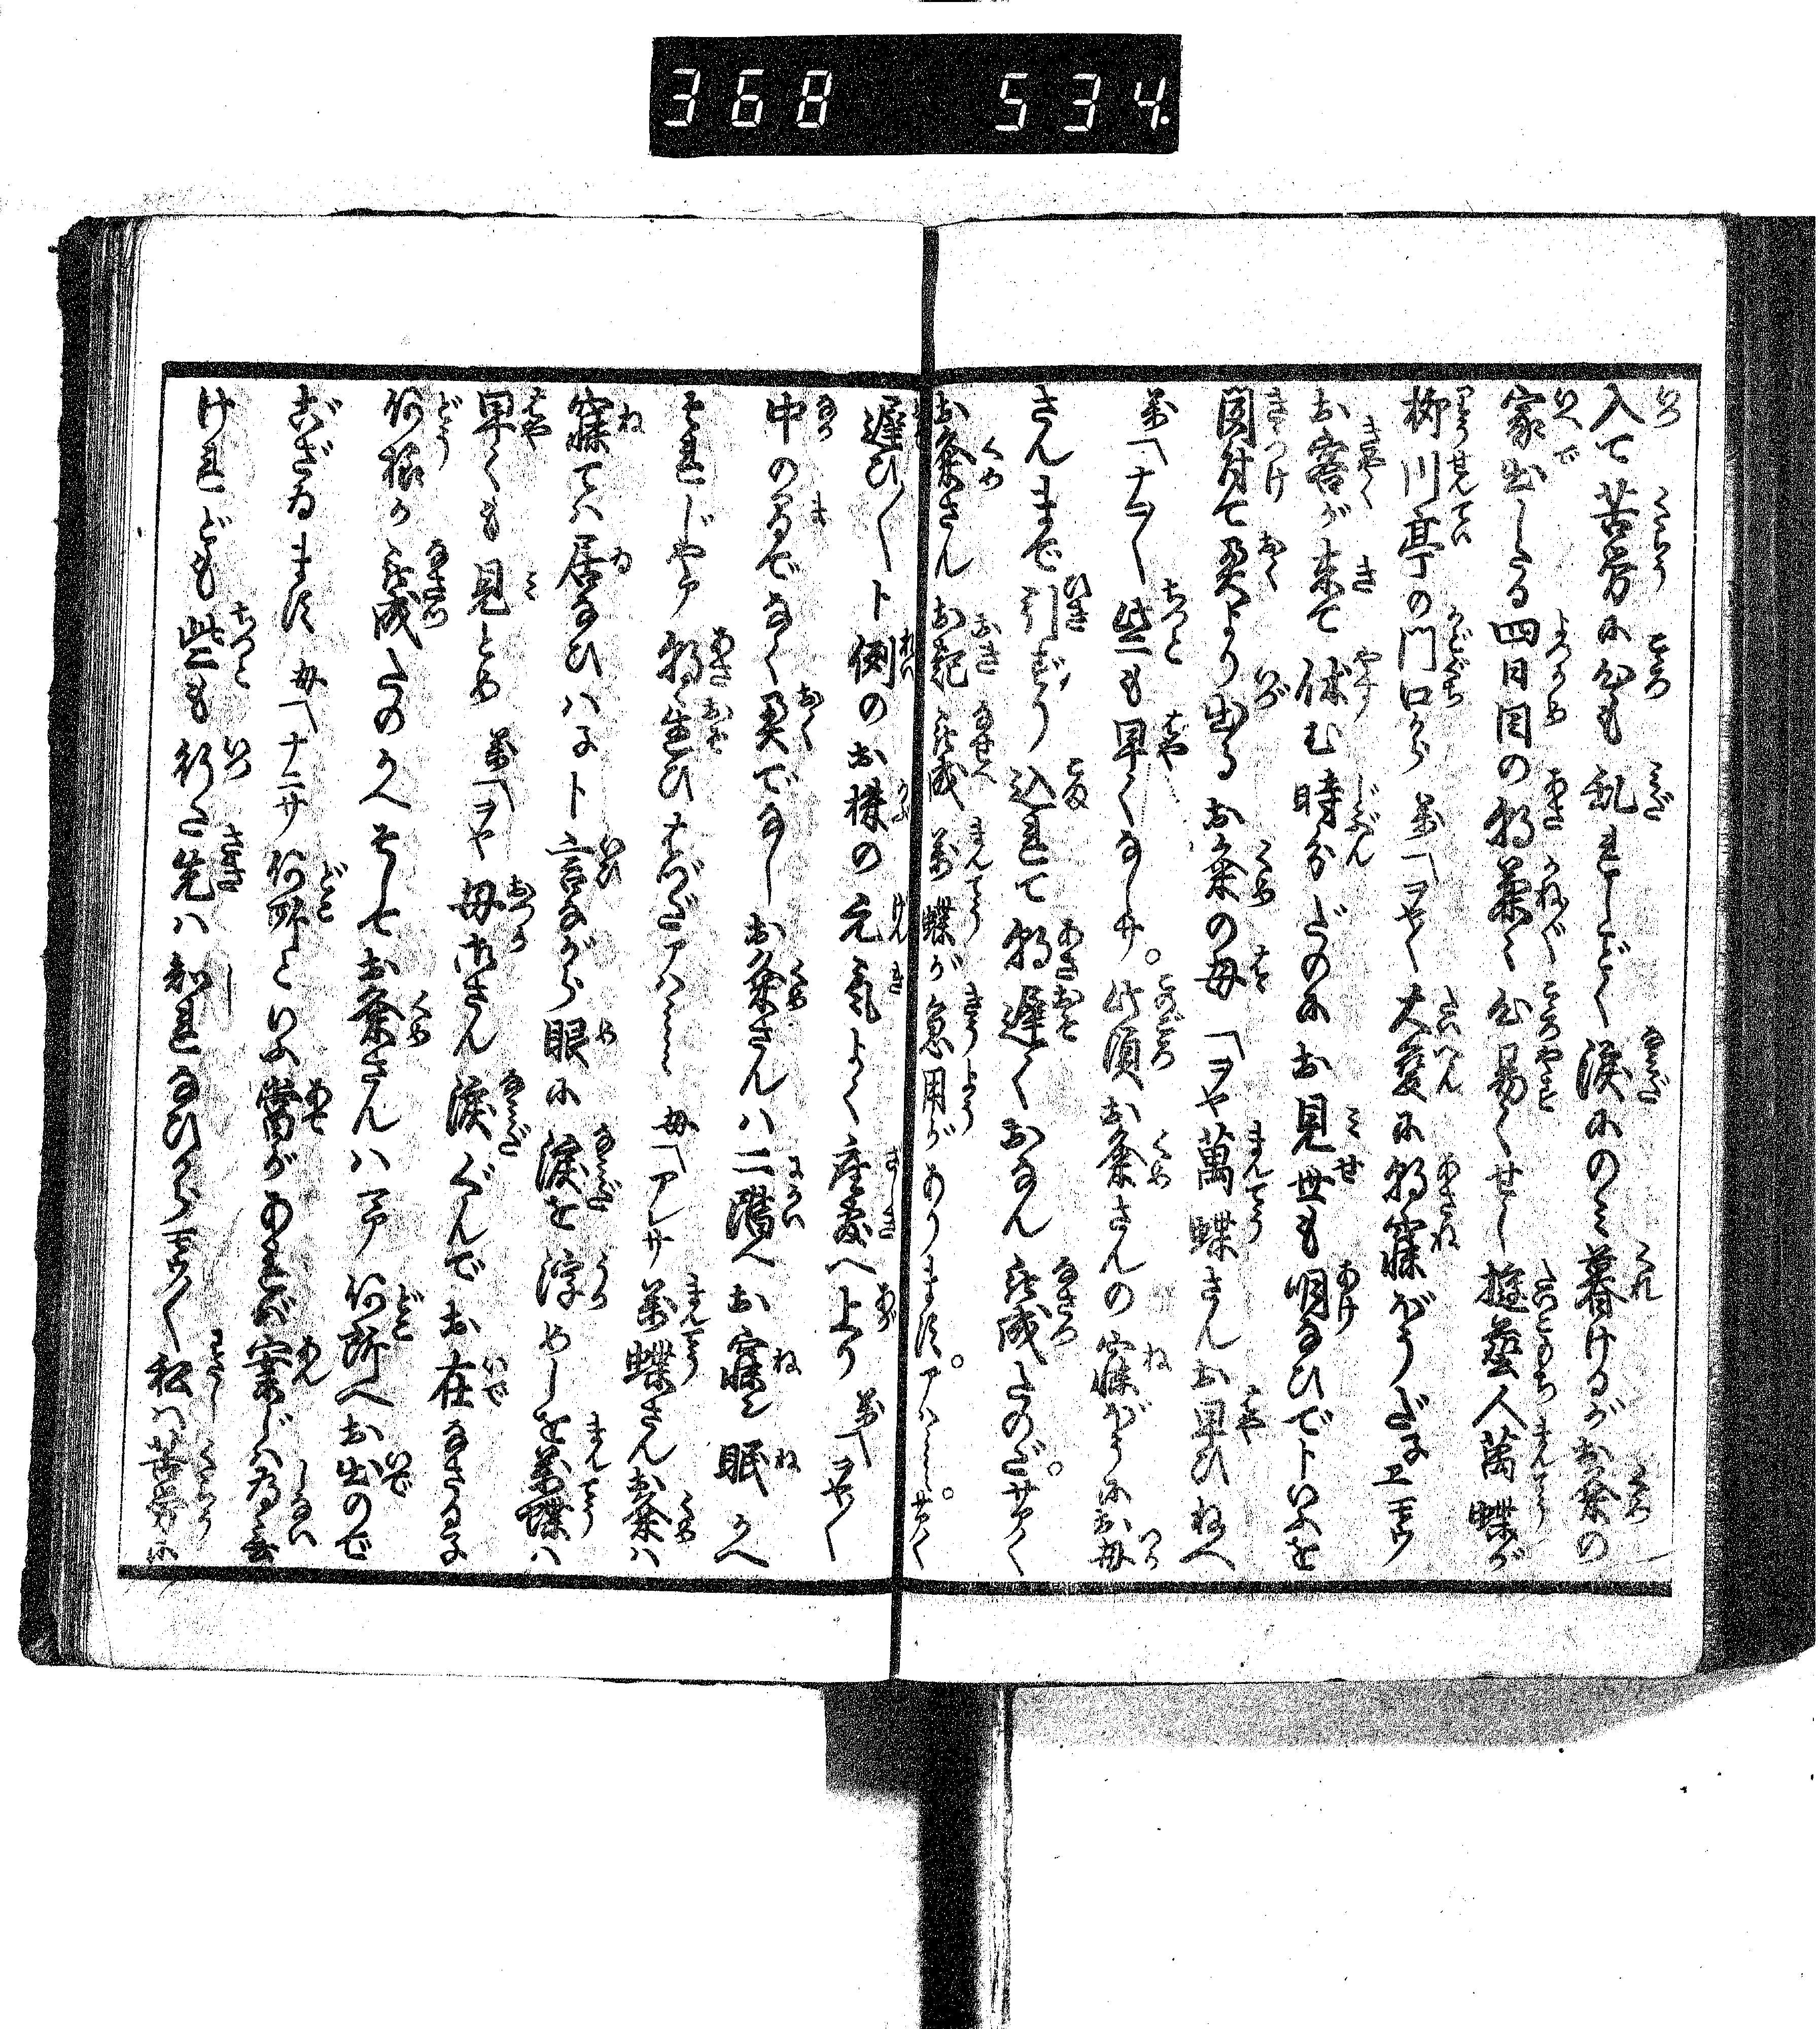 368 534.
入て苦労に心も乱れしだく涙にのみ暮けるがお粂の
家出したる四日目の朝兼て心易くせし挺藝人萬蝶が
柳川亭の門口から 萬「ヲヤ〱大変に朝寐だうだねヱ
お客が来て休む時分だのにお見世も明ないでトいふを
聞付て奥より出るお粂の母「ヲヤ萬蝶さんお早ひねへ
萬「ナニ〱些も早くなしサ。此頃お粂さんの寐ぼうにお母
さんまで引ずり込れて朝遅くおなん被成たのだ。サア〱
お粂さんお起被成萬蝶が急用がありま須。アハヽヽヽ。サア〱
遅ひ〱ト例のお株の元氣よく座敷へ上り 萬「ヲヤ〱
中の間でなく奥でなしお粂さんハ二階へお寐て眠かへ
それじやア朝生ひはづだアハヽヽヽ 母「アレサ萬蝶さんお粂ハ
寐てハ居ないハネト言ながら眼に涙を浮めしを萬蝶ハ
早くも見とめ 萬「ヲヤ母御さん涙ぐんでお在なさるネ
何様か被成たのかへそしてお粂さんハヱ 何所へお出ので
ございま須 母「ナニサ何所といふ当があれば案じハ為無
けれども些も行た先ハ知れないから 私ハ苦労に